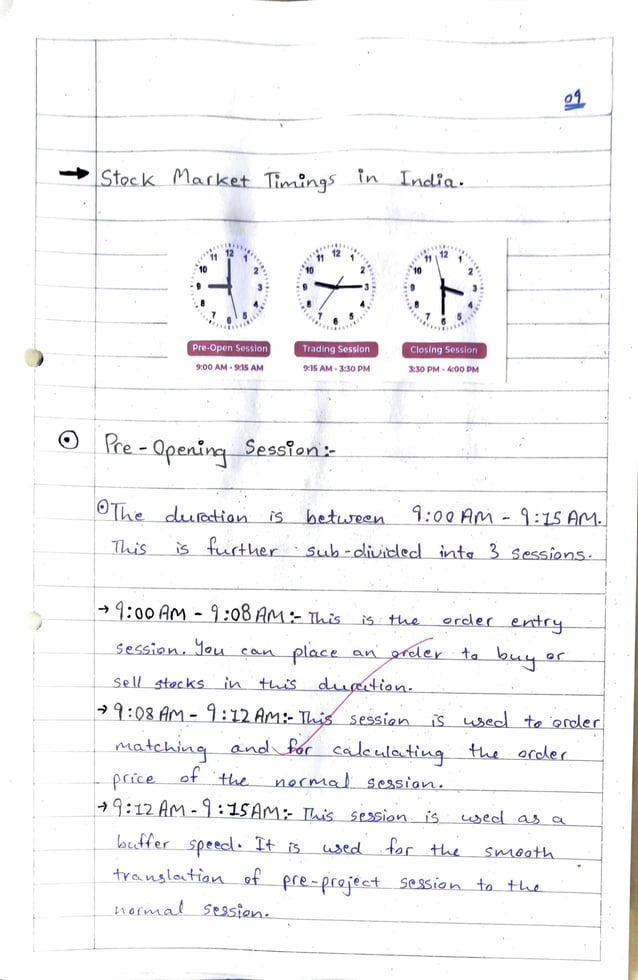 09
→ Stock Market Timings in India.
11 12 1
10 2
9 3
8 4
7 6 5
11 12 1
10 2
9 3
8 4
7 6 5
11 12 1
10 2
9 3
8 4
7 6 5
Pre-Open Session Trading Session Closing Session
9:00 AM - 9:15 AM 9:15 AM - 3:30 PM 3:30 PM - 4:00 PM
Pre-Opening Session:-
The duration is between 9:00 AM - 9:15 AM.
This is further sub-divided into 3 sessions.
→ 9:00 AM - 9:08 AM:- This is the order entry
session. You can place an order to buy or
sell stocks in this duration.
→ 9:08 AM - 9:12 AM:- This session is used to order
matching and for calculating the order
price of the normal session.
→ 9:12 AM - 9:15 AM:- This session is used as a
buffer speed. It is used for the smooth
translation of pre-project session to the
normal session.